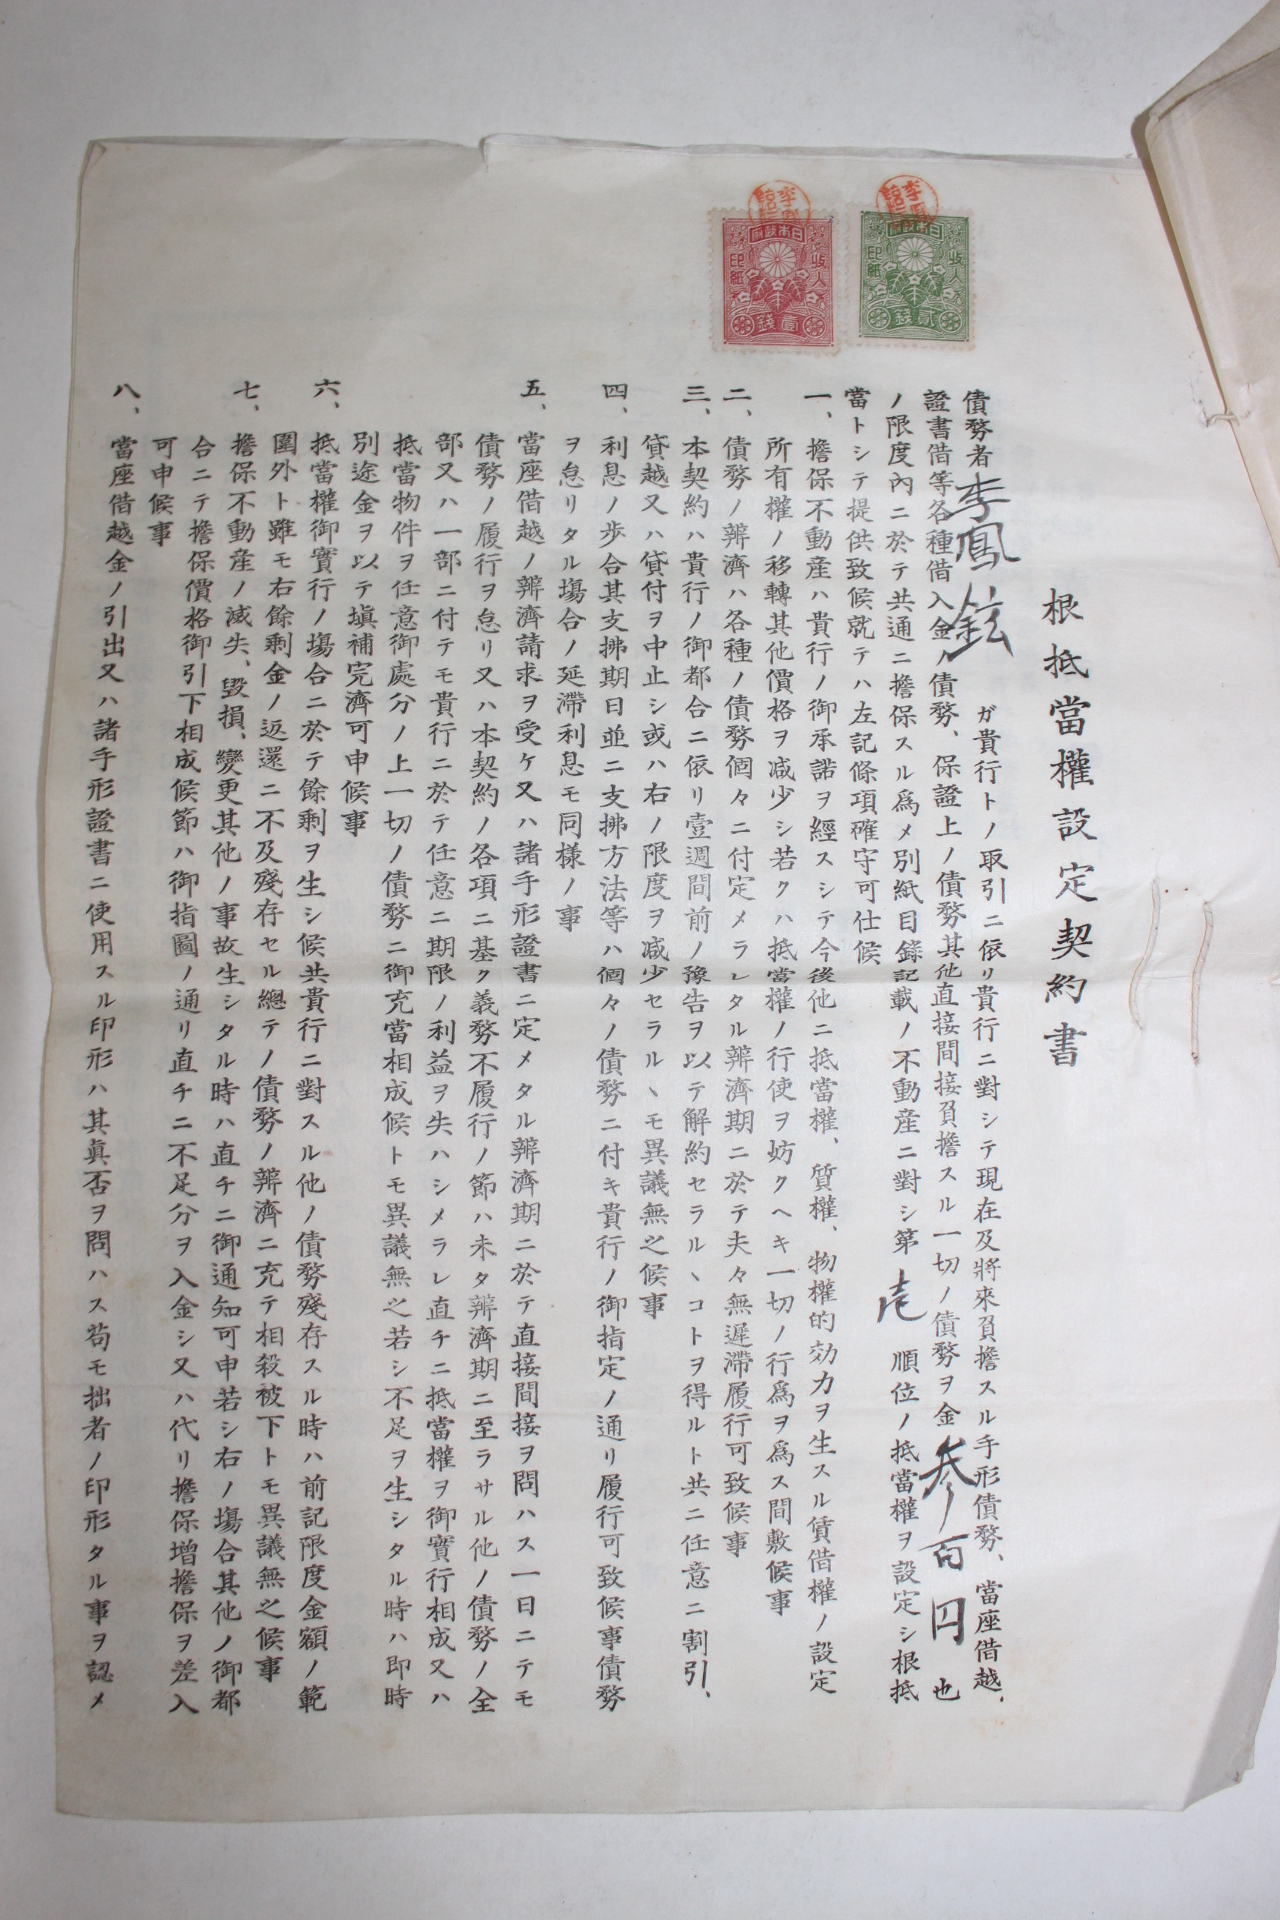 日本政府
收入
印紙
貳錢
日本政府
收入
印紙
壹錢
根抵當權設定契約書
債務者李鳳鉉ガ貴行トノ取引ニ依リ貴行ニ對シテ現在及將來負擔スル手形債務、當座借越、
證書借等各種借入金ノ債務、保證上ノ債務其他直接間接負擔スル一切ノ債務ヲ金參百円也
ノ限度內ニ於テ共通ニ擔保スル爲メ別紙目錄記載ノ不動產ニ對シ第壱順位ノ抵當權ヲ設定シ根抵
當トシテ提供致候就テハ左記條項確守可仕候
一、擔保不動產ハ貴行ノ御承諾ヲ經スシテ今後他ニ抵當權、質權、物權的効力ヲ生スル賃借權ノ設定
所有權ノ移轉其他價格ヲ減少シ若クハ抵當權ノ行使ヲ妨クヘキ一切ノ行爲ヲ爲ス間敷候事
二、債務ノ辨濟ハ各種ノ債務個々ニ付定メラレタル辨濟期ニ於テ夫々無遲滯履行可致候事
三、本契約ハ貴行ノ御都合ニ依リ壹週間前ノ豫告ヲ以テ解約セラルヽコトヲ得ルト共ニ任意ニ割引、
貸越又ハ貸付ヲ中止シ或ハ右ノ限度ヲ減少セラルヽモ異議無之候事
四、利息ノ步合其支拂期日並ニ支拂方法等ハ個々ノ債務ニ付キ貴行ノ御指定ノ通リ履行可致候事債務
ヲ怠リタル塲合ノ延滯利息モ同樣ノ事
五、當座借越ノ辨濟請求ヲ受ケ又ハ諸手形證書ニ定メタル辨濟期ニ於テ直接間接ヲ問ハス一日ニテモ
債務ノ履行ヲ怠リ又ハ本契約ノ各項ニ基ク義務不履行ノ節ハ未タ辨濟期ニ至ラサル他ノ債務ノ全
部又ハ一部ニ付テモ貴行ニ於テ任意ニ期限ノ利益ヲ失ハシメラレ直チニ抵當權ヲ御實行相成又ハ
抵當物件ヲ任意御處分ノ上一切ノ債務ニ御充當相成候トモ異議無之若シ不足ヲ生シタル時ハ即時
別途金ヲ以テ塡補完濟可申候事
六、抵當權御實行ノ塲合ニ於テ餘剩ヲ生シ候共貴行ニ對スル他ノ債務殘存スル時ハ前記限度金額ノ範
圍外ト雖モ右餘剩金ノ返還ニ不及殘存セル總テノ債務ノ辨濟ニ充テ相殺被下トモ異議無之候事
七、擔保不動產ノ滅失、毀損、變更其他ノ事故生シタル時ハ直チニ御通知可申若シ右ノ塲合其他ノ御都
合ニテ擔保價格御引下相成候節ハ御指圖ノ通リ直チニ不足分ヲ入金シ又ハ代リ擔保增擔保ヲ差入
可申候事
八、當座借越金ノ引出又ハ諸手形證書ニ使用スル印形ハ其眞否ヲ問ハス苟モ拙者ノ印形タル事ヲ認メ